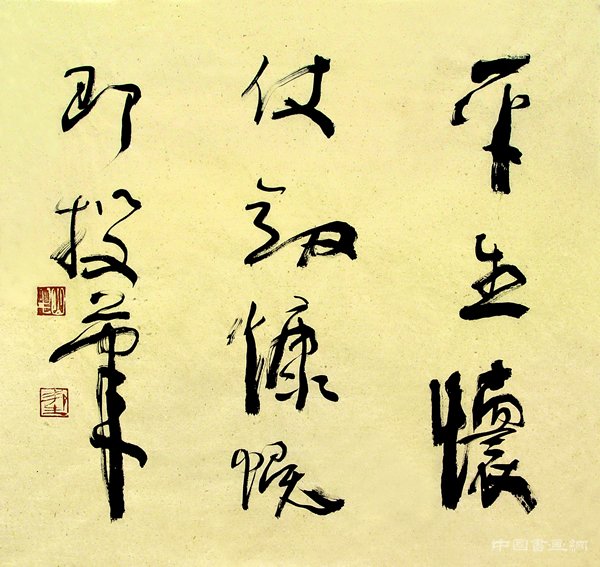 平生懷
仗劍慷慨
即投筆
中国書画網